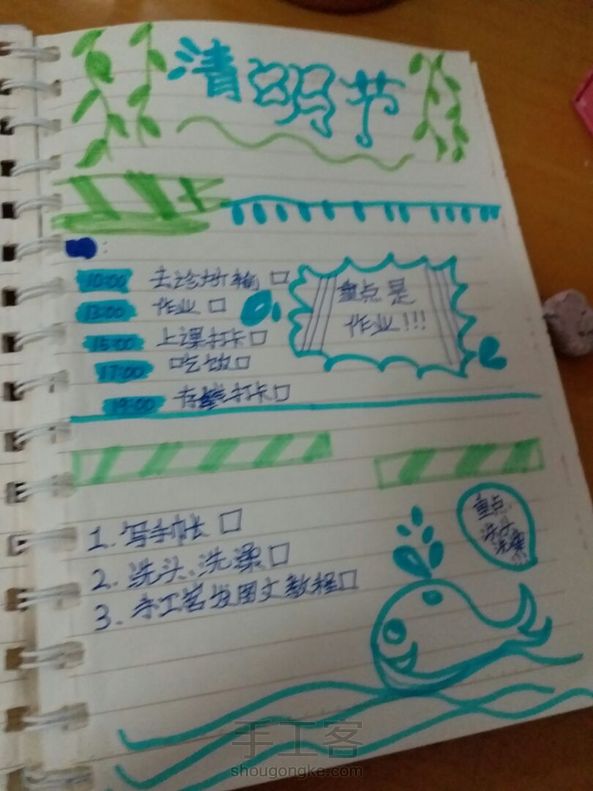 清明节
10:00 去诊所输 □
13:00 作业 □
15:00 上课打卡 □
17:00 吃饭 □
19:00 打卡 □
重点是
作业!!!
1. 写手帐 □
2. 洗头、洗澡 □
3. 手工客发图文教程 □
重点:
洗头
洗澡
手工客
shougongke.com